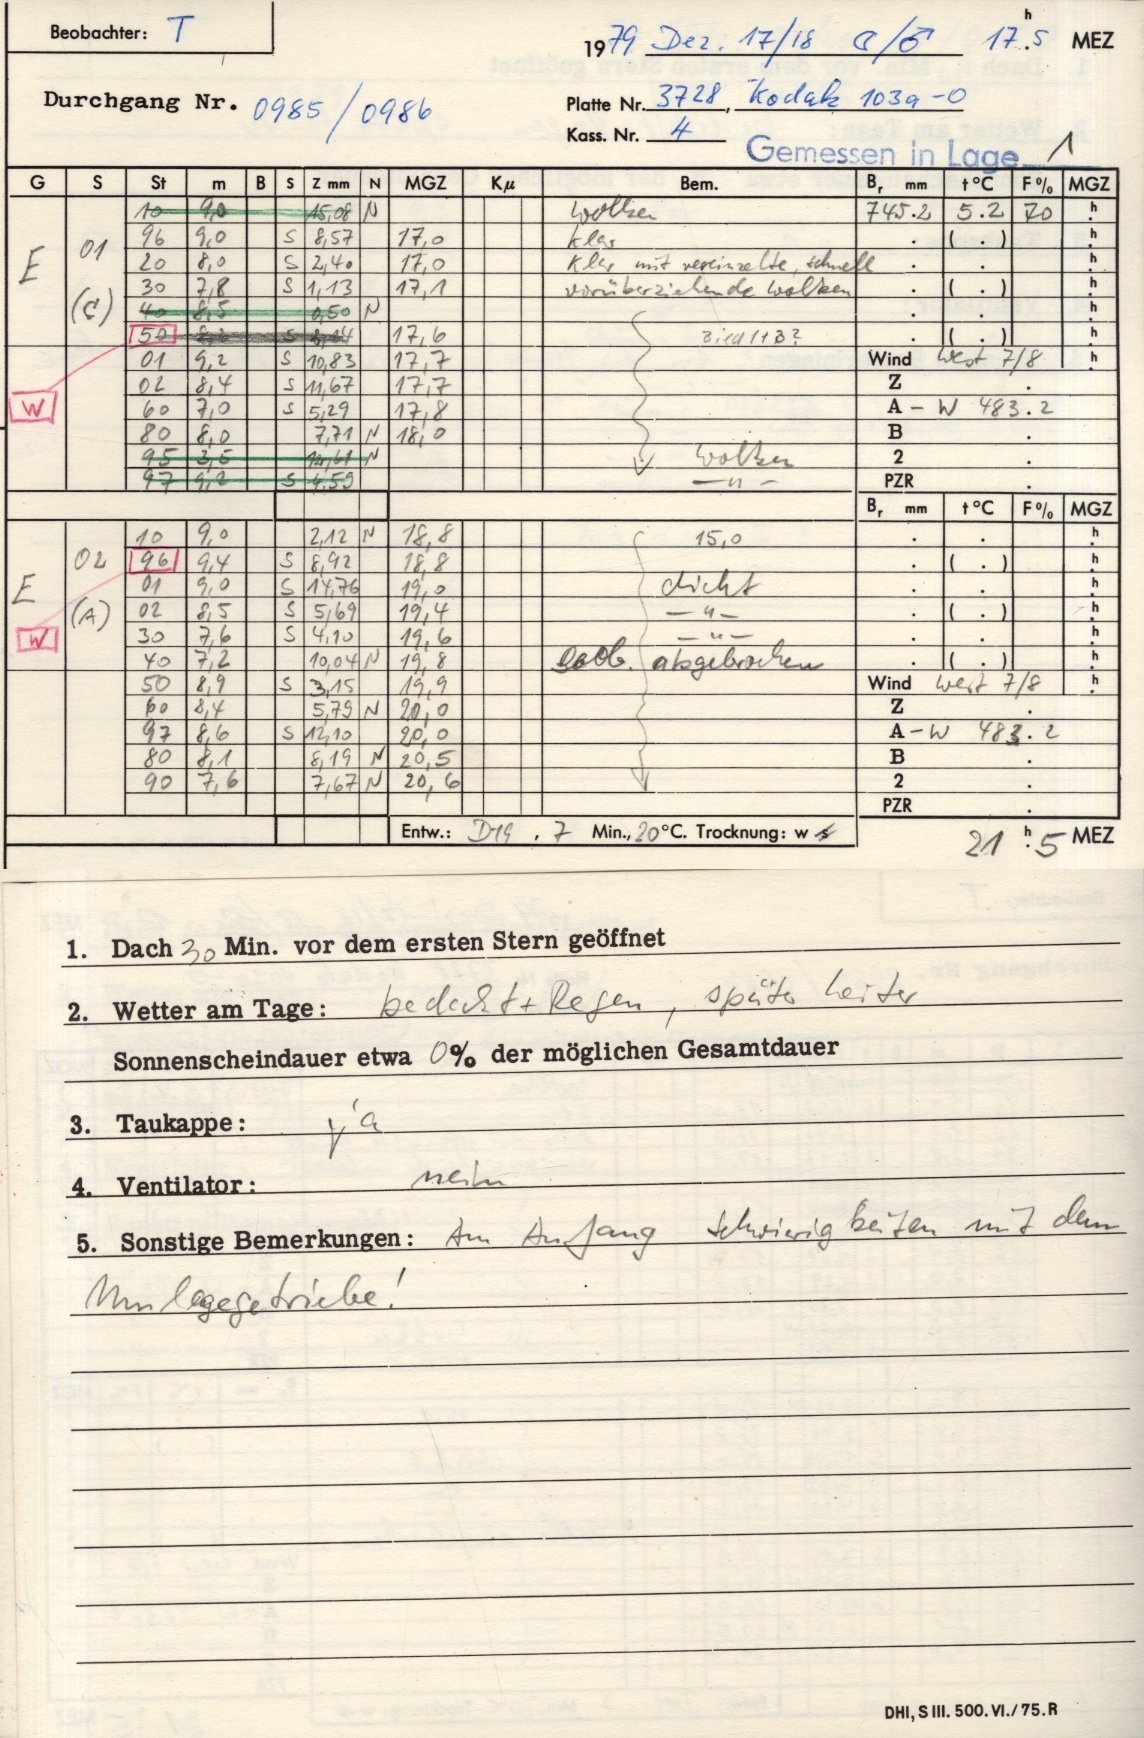 Beobachter: T
1979 Dez. 17/18 ☾/♂ 17.5 h MEZ
Durchgang Nr. 0985/0986
Platte Nr. 3728, Kodak 103a-O
Kass. Nr. 4
Gemessen in Lage 1
G S St m B S Z mm N MGZ Kμ Bem. Br mm t °C F % MGZ
10 9,0 15,08 N Wolken 745.2 5.2 70 h
E 01 96 9,0 S 8,57 17,0 klar . ( . ) h
20 8,0 S 2,40 17,0 klar mit vereinzelte, schnell . . h
(C) 30 7,8 S 1,13 17,1 vorüberziehende Wolken . ( . ) h
40 8,5 0,50 N . . h
50 S 17,6 . ( . ) h
01 9,2 S 10,83 17,7 Wind West 7/8 h
02 8,4 S 11,67 17,7 Z .
W 60 7,0 S 5,29 17,8 A - W 483.2
80 8,0 7,71 N 18,0 B .
95 3,5 14,61 N Wolken 2 .
97 9,2 S 4,59 —"— PZR .
Br mm t °C F % MGZ
10 9,0 2,12 N 18,8 15,0 . . h
02 96 9,4 S 8,92 18,8 . ( . ) h
E 01 9,0 S 14,76 19,0 dicht . . h
(A) 02 8,5 S 5,69 19,4 —"— . ( . ) h
W 30 7,6 S 4,10 19,6 —"— . . h
40 7,2 10,04 N 19,8 Beob. abgebrochen . ( . ) h
50 8,9 S 3,15 19,9 Wind West 7/8 h
60 8,4 5,79 N 20,0 Z .
97 8,6 S 12,10 20,0 A - W 483.2
80 8,1 8,19 N 20,5 B .
90 7,6 7,67 N 20,6 2 .
PZR .
Entw.: D19, 7 Min., 20 °C. Trocknung: w s 21.5 h MEZ
1. Dach 30 Min. vor dem ersten Stern geöffnet
2. Wetter am Tage: bedeckt + Regen, später heiter
Sonnenscheindauer etwa 0% der möglichen Gesamtdauer
3. Taukappe: ja
4. Ventilator: nein
5. Sonstige Bemerkungen: Am Anfang Schwierigkeiten mit dem
Umlegegetriebe!
DHI, S III. 500. VI./75. R